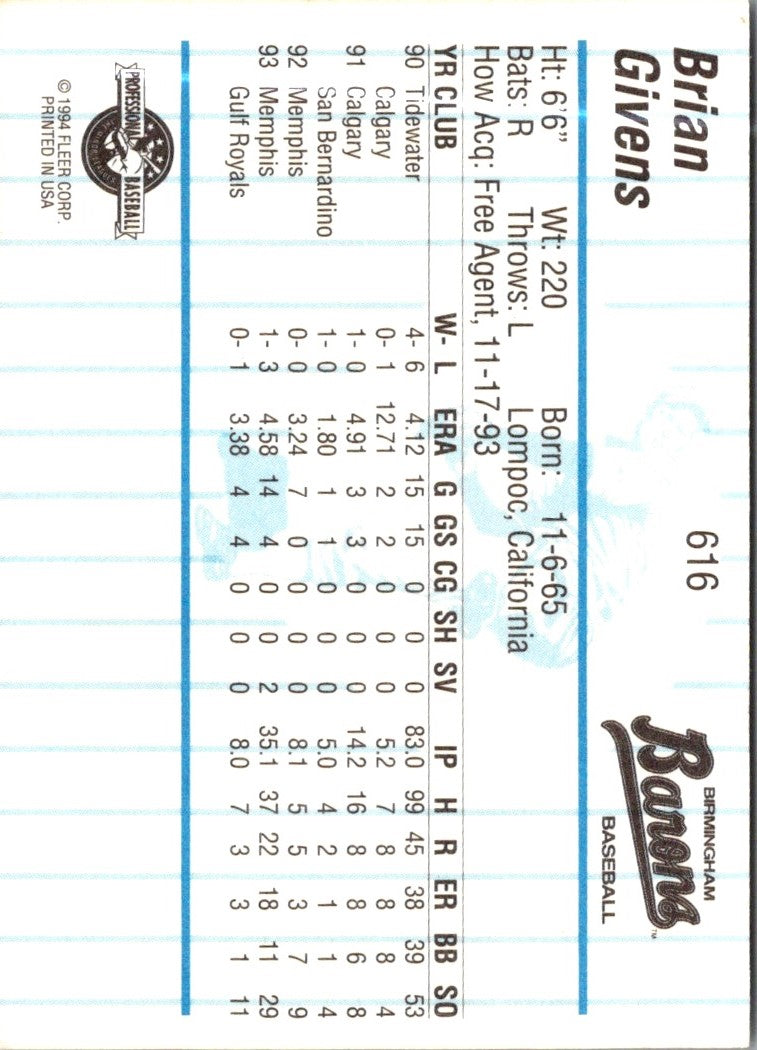 Brian
Givens
616
BIRMINGHAM
Barons™
BASEBALL
Ht: 6'6" Wt: 220 Born: 11-6-65
Bats: R Throws: L Lompoc, California
How Acq: Free Agent, 11-17-93
YR CLUB W- L ERA G GS CG SH SV IP H R ER BB SO
90 Tidewater 4- 6 4.12 15 15 0 0 0 83.0 99 45 38 39 53
Calgary 0- 1 12.71 2 2 0 0 0 5.2 7 8 8 8 4
91 Calgary 1- 0 4.91 3 3 0 0 0 14.2 16 8 8 6 8
San Bernardino 1- 0 1.80 1 1 0 0 0 5.0 4 2 1 1 4
92 Memphis 0- 0 3.24 7 0 0 0 0 8.1 5 5 3 7 9
93 Memphis 1- 3 4.58 14 4 0 0 2 35.1 37 22 18 11 29
Gulf Royals 0- 1 3.38 4 4 0 0 0 8.0 7 3 3 1 11
PROFESSIONAL BASEBALL
© 1994 FLEER CORP.
PRINTED IN USA